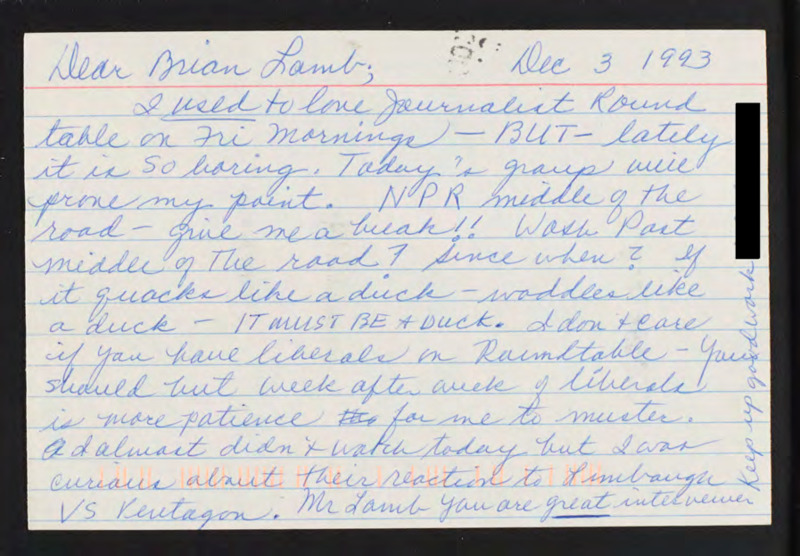 Dear Brian Lamb; Dec 3 1993
I used to love Journalist Round
table on Fri Mornings - BUT - lately
it is So boring. Today's group will
prove my point. NPR middle of the
road - give me a break!! Wash Post
middle of the road? Since when? If
it quacks like a duck - waddles like
a duck - IT MUST BE A DUCK. I don't care
if you have liberals on Roundtable - You
should but week after week of liberals
is more patience for me to muster.
I almost didn't watch today but I was
curious about their reaction to Limbaugh
VS Pentagon. Mr Lamb you are great interviewer
Keep up good work